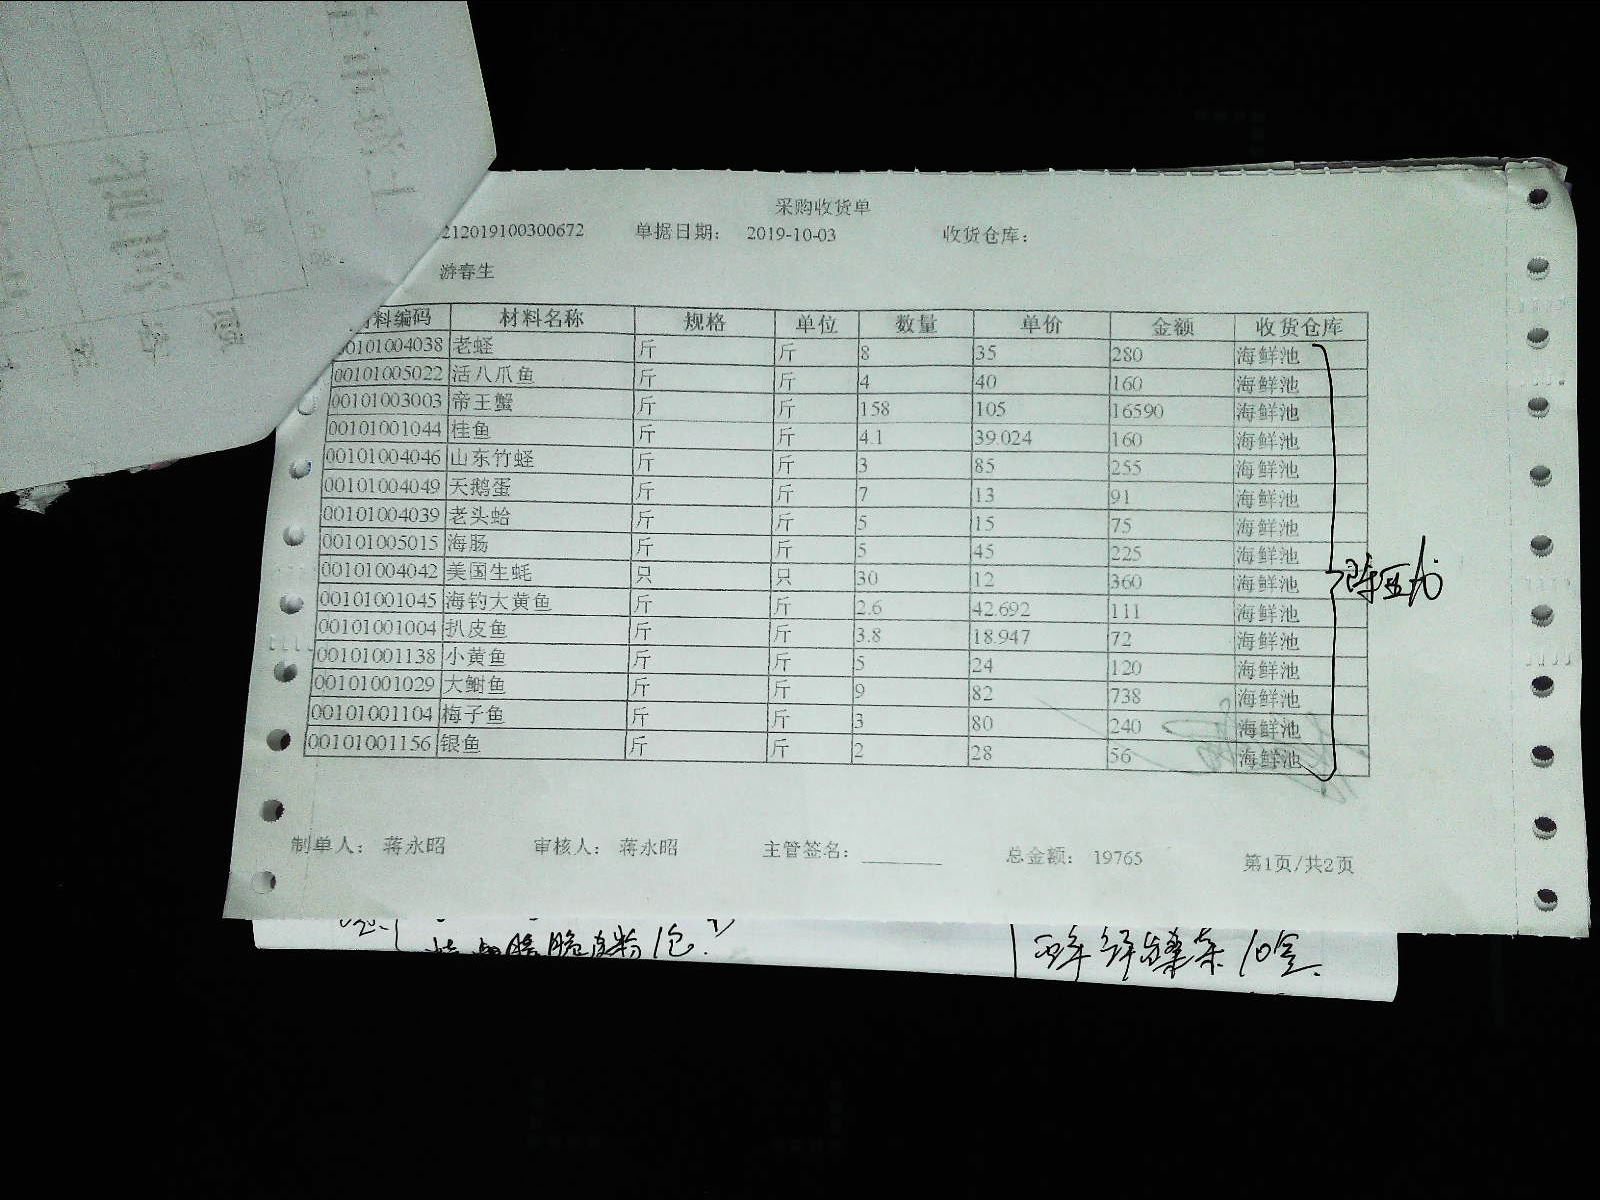 采购收货单
212019100300672 单据日期： 2019-10-03 收货仓库：
游春生
料编码 材料名称 规格 单位 数量 单价 金额 收货仓库
00101004038 老蛏 斤 斤 8 35 280 海鲜池
00101005022 活八爪鱼 斤 斤 4 40 160 海鲜池
00101003003 帝王蟹 斤 斤 158 105 16590 海鲜池
00101001044 桂鱼 斤 斤 4.1 39.024 160 海鲜池
00101004046 山东竹蛏 斤 斤 3 85 255 海鲜池
00101004049 天鹅蛋 斤 斤 7 13 91 海鲜池
00101004039 老头蛤 斤 斤 5 15 75 海鲜池
00101005015 海肠 斤 斤 5 45 225 海鲜池
00101004042 美国生蚝 只 只 30 12 360 海鲜池
00101001045 海钓大黄鱼 斤 斤 2.6 42.692 111 海鲜池
00101001004 扒皮鱼 斤 斤 3.8 18.947 72 海鲜池
00101001138 小黄鱼 斤 斤 5 24 120 海鲜池
00101001029 大鲥鱼 斤 斤 9 82 738 海鲜池
00101001104 梅子鱼 斤 斤 3 80 240 海鲜池
00101001156 银鱼 斤 斤 2 28 56 海鲜池
制单人： 蒋永昭 审核人： 蒋永昭 主管签名： 总金额： 19765 第1页/共2页